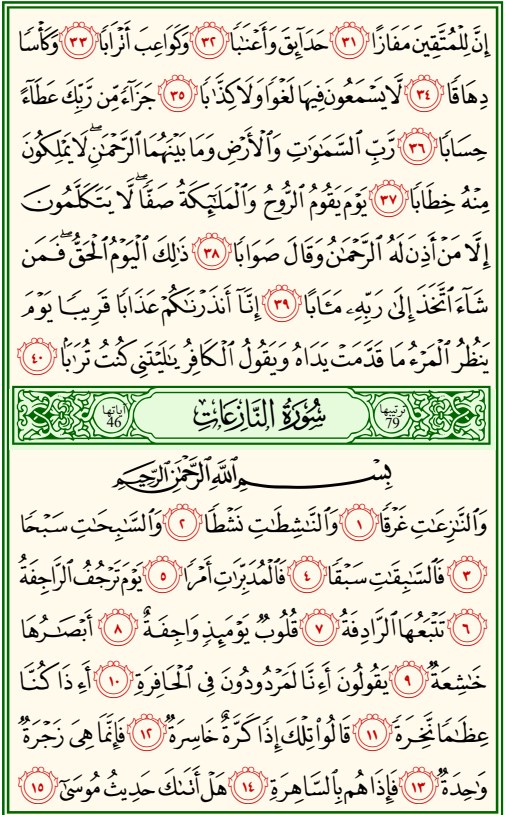 إِنَّ لِلْمُتَّقِينَ مَفَازًا ٣١ حَدَآئِقَ وَأَعْنَٰبًا ٣٢ وَكَوَاعِبَ أَتْرَابًا ٣٣ وَكَأْسًا
دِهَاقًا ٣٤ لَّا يَسْمَعُونَ فِيهَا لَغْوًا وَلَا كِذَّٰبًا ٣٥ جَزَآءً مِّن رَّبِّكَ عَطَآءً
حِسَابًا ٣٦ رَّبِّ السَّمَٰوَٰتِ وَالْأَرْضِ وَمَا بَيْنَهُمَا الرَّحْمَٰنِۖ لَا يَمْلِكُونَ
مِنْهُ خِطَابًا ٣٧ يَوْمَ يَقُومُ الرُّوحُ وَالْمَلَٰٓئِكَةُ صَفًّاۖ لَّا يَتَكَلَّمُونَ
إِلَّا مَنْ أَذِنَ لَهُ الرَّحْمَٰنُ وَقَالَ صَوَابًا ٣٨ ذَٰلِكَ الْيَوْمُ الْحَقُّۖ فَمَن
شَآءَ اتَّخَذَ إِلَىٰ رَبِّهِۦ مَـَٔابًا ٣٩ إِنَّآ أَنذَرْنَٰكُمْ عَذَابًا قَرِيبًا يَوْمَ
يَنظُرُ الْمَرْءُ مَا قَدَّمَتْ يَدَاهُ وَيَقُولُ الْكَافِرُ يَٰلَيْتَنِى كُنتُ تُرَٰبًۢا ٤٠
ترتيبها 79 سُورَةُ النَّازِعَاتِ آياتها 46
بِسْمِ اللَّهِ الرَّحْمَٰنِ الرَّحِيمِ
وَالنَّٰزِعَٰتِ غَرْقًا ١ وَالنَّٰشِطَٰتِ نَشْطًا ٢ وَالسَّٰبِحَٰتِ سَبْحًا
٣ فَالسَّٰبِقَٰتِ سَبْقًا ٤ فَالْمُدَبِّرَٰتِ أَمْرًا ٥ يَوْمَ تَرْجُفُ الرَّاجِفَةُ
٦ تَتْبَعُهَا الرَّادِفَةُ ٧ قُلُوبٌ يَوْمَئِذٍ وَاجِفَةٌ ٨ أَبْصَٰرُهَا
خَٰشِعَةٌ ٩ يَقُولُونَ أَءِنَّا لَمَرْدُودُونَ فِى الْحَافِرَةِ ١٠ أَءِذَا كُنَّا
عِظَٰمًا نَّخِرَةً ١١ قَالُوا۟ تِلْكَ إِذًا كَرَّةٌ خَاسِرَةٌ ١٢ فَإِنَّمَا هِىَ زَجْرَةٌ
وَٰحِدَةٌ ١٣ فَإِذَا هُم بِالسَّاهِرَةِ ١٤ هَلْ أَتَىٰكَ حَدِيثُ مُوسَىٰٓ ١٥